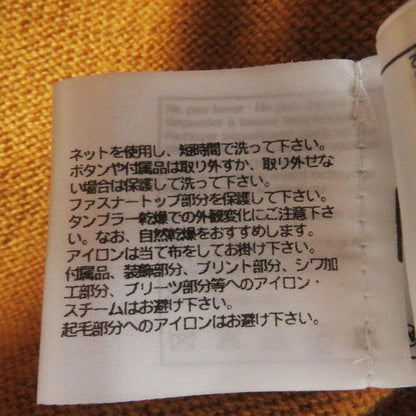 ネットを使用し、短時間で洗って下さい。
ボタンや付属品は取り外すか、取り外せな
い場合は保護して洗って下さい。
ファスナートップ部分を保護して下さい。
タンブラー乾燥での外観変化にご注意下さ
い。なお、自然乾燥をおすすめします。
アイロンは当て布をしてお掛け下さい。
付属品、装飾部分、プリント部分、シワ加
工部分、プリーツ部分等へのアイロン・
スチームはお避け下さい。
起毛部分へのアイロンはお避け下さい。